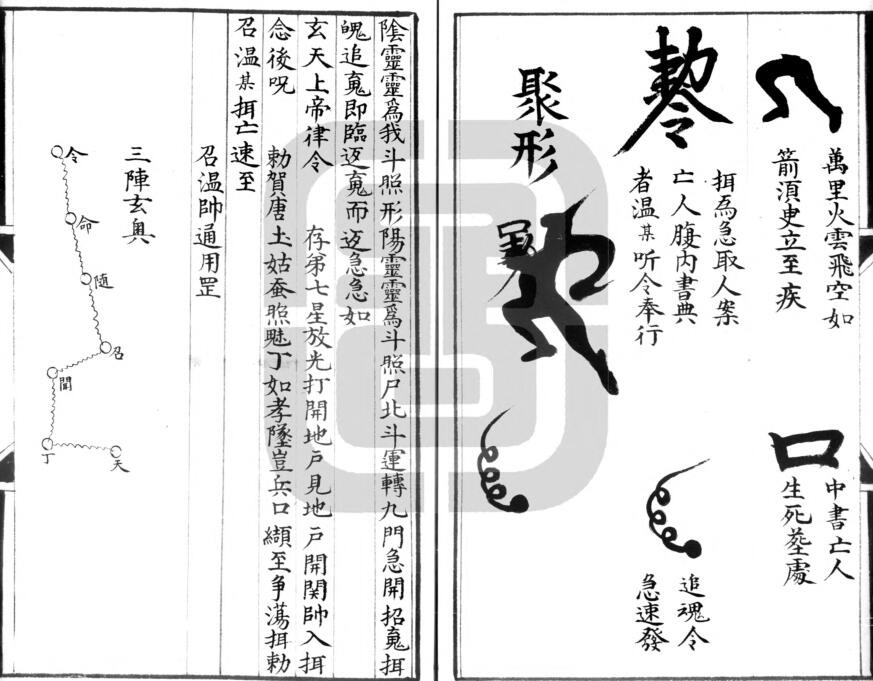 萬里火雲飛空如
箭須史立至疾
口
中書亡人
生死塟處
勅令
揖爲急取人案
亡人腹内書典
者温某听令奉行
追魂令
急速發
聚形
陰靈靈爲我斗照形陽靈靈爲斗照尸北斗運轉九門急開招䰟揖
魄追䰟即臨返䰟而返急急如
玄天上帝律令
存第七星放光打開地户見地户開関帥入揖
念後呪
勅賀唐土姑蚕照魅丁如孝墜豈兵口纈至争蕩揖勅
召温某揖亡速至
召温帥通用罡
三陣玄奥
令
命
随
召
聞
丁
天